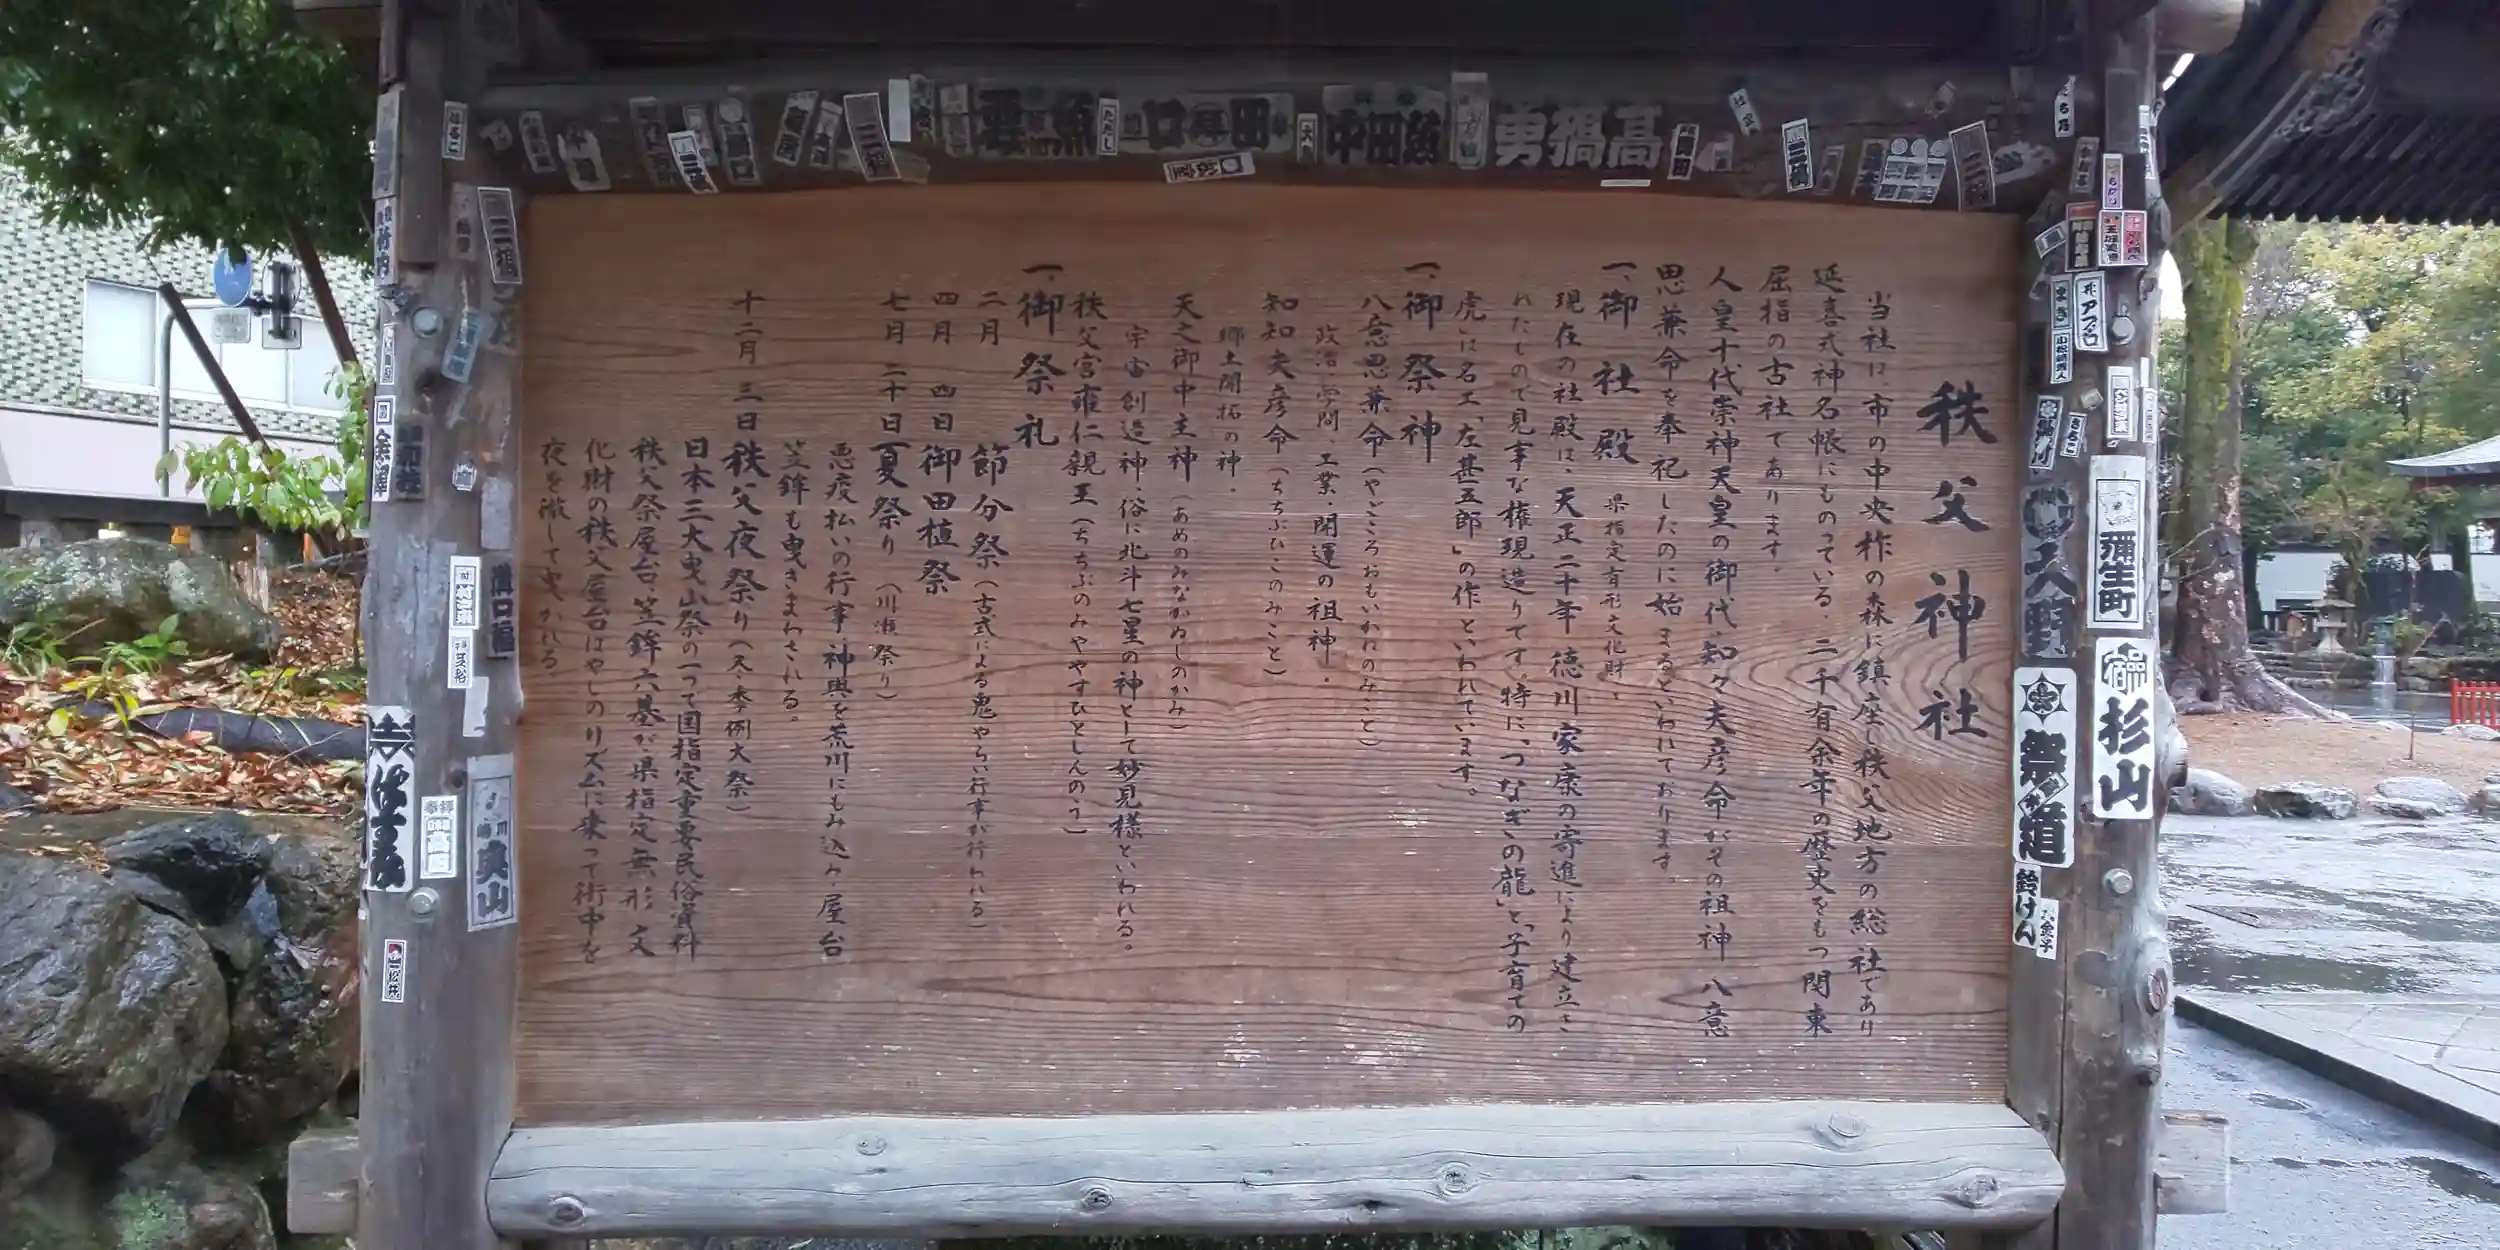 秩父神社
当社は、市の中央柞の森に鎮座し秩父地方の総社であり
延喜式神名帳にものっている。二千有余年の歴史をもつ関東
屈指の古社であります。
人皇十代崇神天皇の御代、知々夫彦命がその祖神 八意
思兼命を奉祀したのに始まるといわれております。
一、御社殿 県指定有形文化財。
現在の社殿は、天正二十年 徳川家康の寄進により建立さ
れたもので見事な権現造りです。特に「つなぎの龍」と「子育ての
虎」は名工「左甚五郎」の作といわれています。
一、御祭神
八意思兼命(やごころおもいかねのみこと)
政治、学問、工業、開運の祖神。
知知夫彦命(ちちぶひこのみこと)
郷土開拓の神。
天之御中主神(あめのみなかぬしのかみ)
宇宙創造神、俗に北斗七星の神として妙見様といわれる。
秩父宮雍仁親王(ちちぶのみややすひとしんのう)
一、御祭礼
二月 節分祭(古式による鬼やらい行事が行われる)
四月 四日 御田植祭
七月 二十日 夏祭り(川瀬祭り)
悪疫払いの行事、神輿を荒川にもみ込み、屋台
笠鉾も曳きまわされる。
十二月 三日 秩父夜祭り(冬季例大祭)
日本三大曳山祭の一つで国指定重要民俗資料
秩父祭屋台、笠鉾六基が、県指定無形文
化財の秩父屋台ばやしのリズムに乗って街中を
夜を徹して曳かれる。
髙橋勇
三橋
彌生町
杉山
祭道
鈴けん
大金子
入野
溝口福
奥山
村田
松井
はるこ
ただし